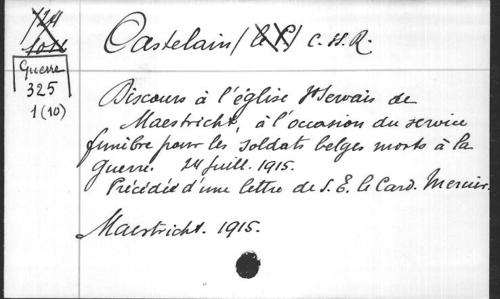 Guerre
325
1(10)
Castelain/(le P.) C. H. R.
Discours à l'église St Servais de
Maestricht, à l'occasion du service
funèbre pour les soldats belges morts à la
guerre. 24 juill. 1915.
Précédée d'une lettre de S. E. le Card. Mercier.
Maestricht. 1915.